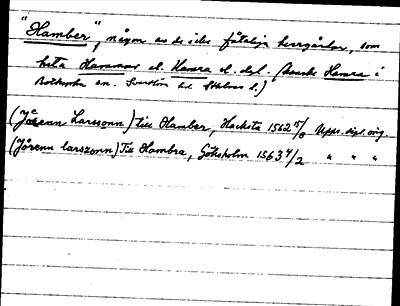 "Hamber", någon av de icke fåtaliga herrgårdar, som
heta Hammar el. Hamra el. dyl. (kanske Hamra i
Botkyrka sn. Svartlösa hd. Sthlms l.)
(Jörenn Larssonn) till Hamber, Hacksta 1562 15/8 Upps. dipl. orig.
(Jörenn larszonn) Till Hambra, Gåksholm 1563 4/2 " " "